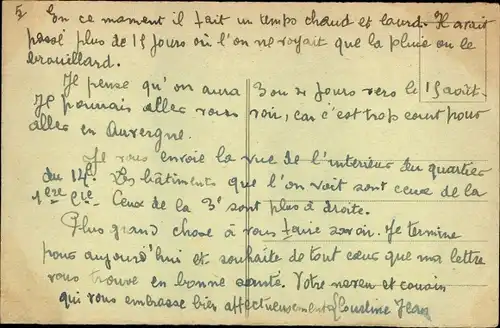 5
En ce moment il fait un temps chaud et lourd. Il avait
passé plus de 15 jours où l'on ne voyait que la pluie ou le
brouillard.
Je pense qu'on aura 3 ou 4 jours vers le 15 août.
Je pourrais aller vous voir, car c'est trop court pour
aller en Auvergne.
Je vous envoie la vue de l'interieur du quartier
du 14e. Les bâtiments que l'on voit sont ceux de la
1ere Cie. Ceux de la 3e sont plus à droite.
Plus grand chose à vous faire savoir. Je termine
pour aujourd'hui et souhaite de tout cœur que ma lettre
vous trouve en bonne santé. Votre neveu et cousin
qui vous embrasse bien affectueusement Jean